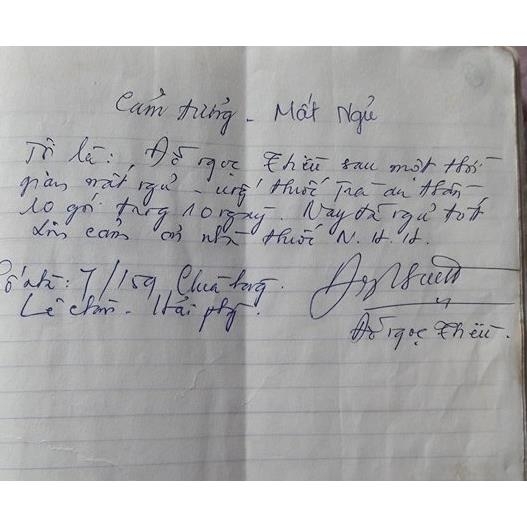 Cảm tưởng - Mất Ngủ
Tôi là: Đỗ Ngọc Thiều sau một thời
gian mất ngủ - uống thuốc trà an thần
10 gói trong 10 ngày. Nay đã ngủ tốt
Xin cảm ơn nhà thuốc N.H.H.
Số nhà: 7/159 Chùa hàng.
Lê Chân - Hải phòng.
Đỗ Ngọc Thiều.